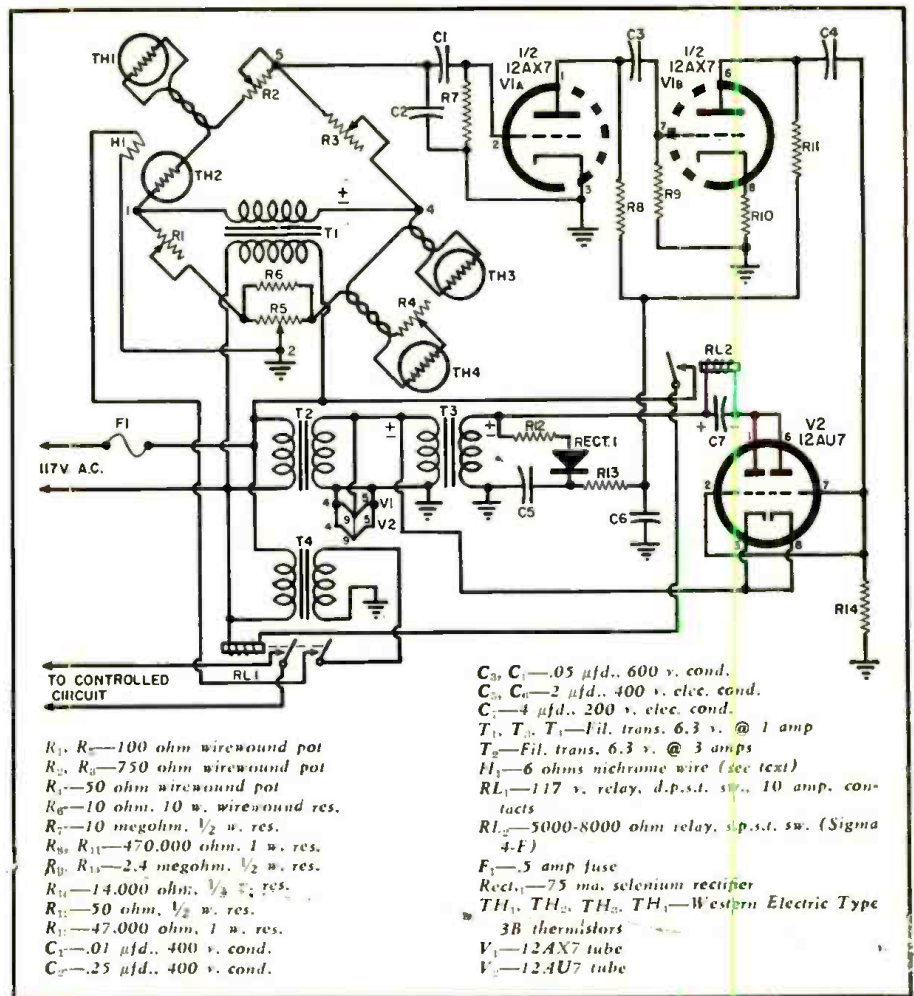 TH1
R2
5
C1
1/2
12AX7
V1A
C3
1/2
12AX7
V1B
C4
C2
R7
1
2
3
6
7
8
R3
H1
TH2
R11
R8
R9
R10
1
±
4
T1
R1
R6
R5
2
TH3
R4
TH4
RL2
F1
T2
±
T3
±
R12
RECT.1
+
C7
-
V2
12AU7
1
6
2
7
3
8
117V. A.C.
4
5
V1
9
4
5
V2
9
C5
R13
C6
T4
R14
RL1
TO CONTROLLED
CIRCUIT
R1, R5—100 ohm wirewound pot
R2, R3—750 ohm wirewound pot
R4—50 ohm wirewound pot
R6—10 ohm, 10 w. wirewound res.
R7—10 megohm, 1/2 w. res.
R8, R11—470,000 ohm, 1 w. res.
—2.4 megohm, 1/2 w. res.
R10—14,000 ohm, w. res.
R12—50 ohm, 1/2 w. res.
R13—47,000 ohm, 1 w. res.
C1—.01 μfd., 400 v. cond.
C2—.25 μfd., 400 v. cond.
C3, C4—.05 μfd., 600 v. cond.
C5, C6—2 μfd., 400 v. elec. cond.
C7—4 μfd., 200 v. elec. cond.
T1, T3, T4—Fil. trans. 6.3 v. @ 1 amp
T2—Fil. trans. 6.3 v. @ 3 amps
H1—6 ohms nichrome wire (see text)
RL1—117 v. relay, d.p.s.t. sw., 10 amp. con-
tacts
RL2—5000-8000 ohm relay, s.p.s.t. sw. (Sigma
4-F)
F1—.5 amp fuse
Rect.1—75 ma. selenium rectifier
TH1, TH2, TH3, TH4—Western Electric Type
3B thermistors
V1—12AX7 tube
V2—12AU7 tube